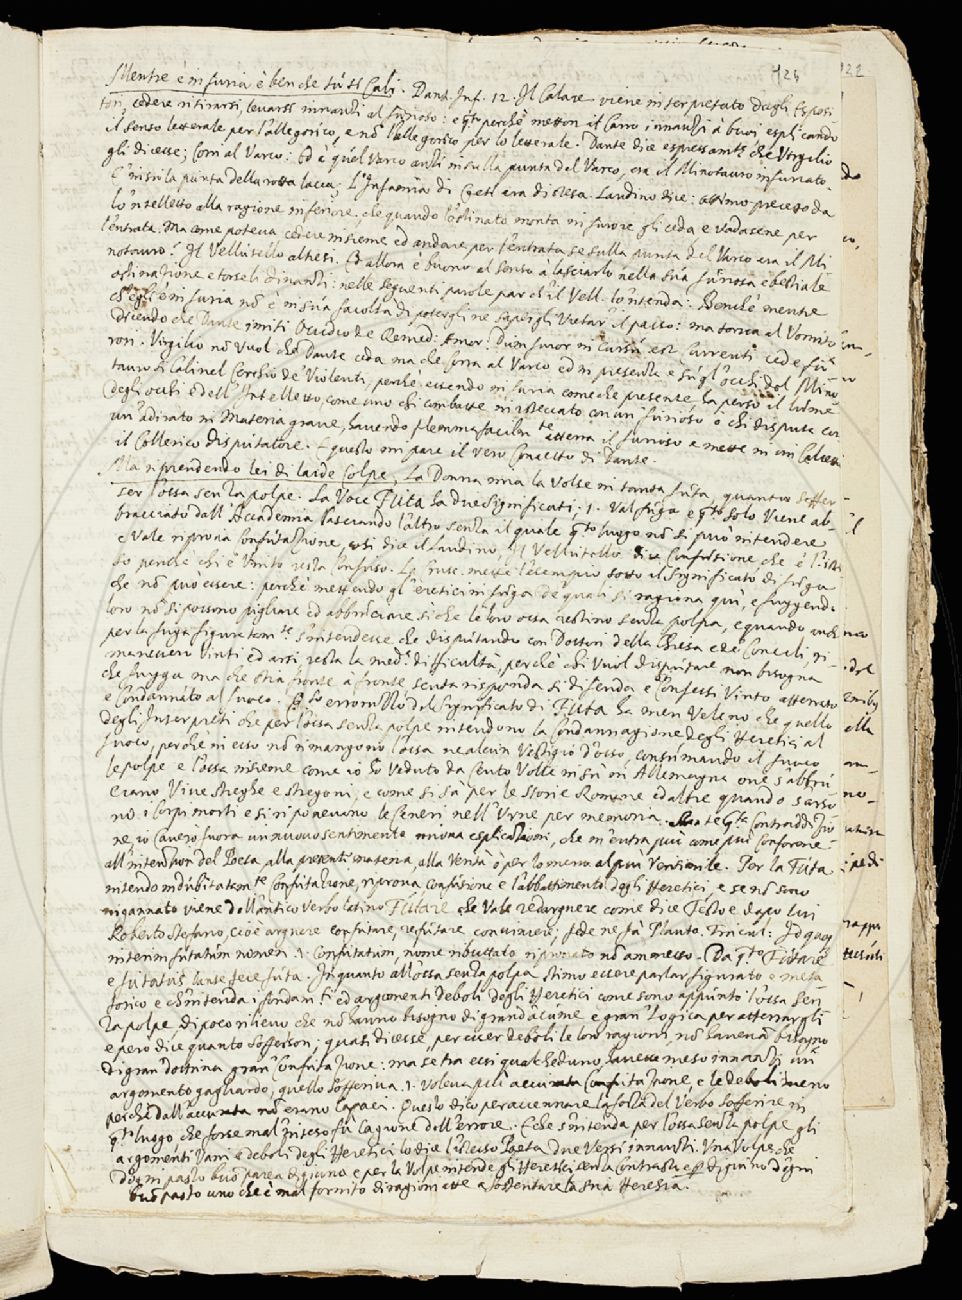 124
122
Mentre è in furia è ben che tù ti Cali. Dant. Inf. 12. Il Calare viene interpretato dagli Esposi
tori, cedere ritirarsi, levarsi innanti al furioso: e q.to perchè metton il Carro innanzi à buoi esplicando
il senso letterale per l'allegorico, e nõ l'allegorico per lo letterale. Dante dice espressam.te che Virgilio
gli dicesse; Corri al Varco: Ed è quel Varco anzi in sulla punta del Varco, era il Minotauro infuriato.
E in sù la punta della rotta lacca, L'Infamia di Creti era distesa. Landino dice: ottimo precetto da
l'ostinato monta in furore gli ceda e vadasene per
l'entrata. Ma come poteva cedere insieme ed andare per l'entrata se sulla punta del Varco era il Mi
notauro? Il Vellutello altresì. Ed allora è buono al senso à lasciarlo nella sua furiosa e bestiale
ostinazione e torseli dinanzi: nelle seguenti parole par ch'il Vell. lo 'ntenda: Benchè mentre
ch'egli è in furia nõ è in sua facoltà di potergli ne sapergli Vietar' il passo: ma torna al Vomito
dicendo che Dante imiti Ovidio de Remed: Amor: Dum furor in cursu est Currenti cede fu
rori. Virgilio nõ vuol che Dante ceda ma che Corra al Varco ed in presenza e sù gl'occhi del Mino
tauro si Cali nel Cerchio de' Violenti, perchè essendo in furia come che presente ha perso il lume
degli occhi e dell'Intelletto, come uno chi combatte in isteccato con un furioso o chi disputa con
un'adirato in Materia grave, havendo flemma facilm.te atterra il furioso e mette in un Calcetti
il Collerico Disputatore. E questo mi pare il vero Concetto di Dante.
Ma riprendendo lei di laide Colpe, La Donna mia la Volse in tanta futa, quanto soffer-
ser l'ossa senza polpe. La Voce FUTA ha due significati. 1. Val fuga e q.to solo Viene ab
bracciato dall'Accademia lasciando l'altro senza il quale q.to luogo nõ si può intendere
e Vale riprova Confutazione, così dice il Landino, Il Vellutello dice Confusione, che è l'istes
so perchè chi è Vinto resta Confuso. La Crusc. mette l'esempio sotto il significato di fuga
che nõ può essere: perchè mettendo gl'eretici in fuga de quali si ragiona quì, e fuggendo
loro nõ si possono pigliare ed abbruciare sì che le loro ossa restino senza polpa, e quando anch
per la fuga figuratam.te s'intendesse che disputando con Dottori della Chiesa e Concili, ri-
manessero Vinti ed arsi resta la med.a difficultà, perchè chi vuol disputare non bisogna
che fugga ma che stia fronte à fronte, senta risponda si difenda e Confessi Vinto atterrato
e Condannato al fuoco. Q.to del Significato di FUTA ha men Veleno che quello
degli Interpreti che per l'ossa senza polpe intendono la Condannagione degli Heretici al
fuoco, perchè in esso nõ rimangono l'ossa ne alcun Vestigio d'osso, consumando il fuoco
le polpe e l'ossa insieme come io hò Veduto da Cento Volte in sù in Allemagna ove s'abbru
ciano Vive streghe e stregoni, e come si sà per le storie Romane ed altre quando s'arso
no i Corpi morti e si riponevano le Ceneri nell'Urne per memoria. q.ta Contraddizio
ne, io Cavero fuora un nuovo sentimento nuova esplicazione, che m'entra più come più Conforme
all'intention del Poeta, alla presenti materia, alla Verità ò per lo meno al più Verisimile. Per la Futa
intendo indubitatam.te Confutazione, riprova, confusione e l'abbattimento degli Heretici, e se nõ sono
ingannato viene dall'antico verbo latino Futare che vale redarguere come dice Festo e dopo lui
Roberto Stefano, cioè arguere confutare, refutare convincere; fede ne fà Plauto. Trucul: Id quoq
interim futatum nomen .1. Confutatum, nome ributtato riprovato nõ ammesso. Da q.to Futare
e futatus l'anse fece futa. In quanto all'ossa senza polpa stimo essere parlar figurato e meta
forico e ch'intenda i fondam.ti ed argomenti deboli degli Heretici come sono appunto l'ossa sen
za polpe di poco rilievo che nõ hanno bisogno di grand'acume e gran Logica per atterrargli
e però dice quanto sofferson; quasi dicesse, per esser deboli le lor ragioni nõ havevã bisogno
di gran dottrina gran Confutazione: ma se tra essi qualcheduno havesse messo innanzi un
argomento gagliardo, quello sofferiva .1. voleva più accurata Confutazione, e le deboli meno
perchè dall'accurata nõ erano Capaci. Questo dico per accennare la forza del Verbo Sofferire in
q.to luogo che forse mal inteso fù Cagione dell'errore. E che s'intenda per l'ossa senza polpe gli
argomenti Vani e deboli degli Heretici lo dice l'istesso Poeta due Versi innanzi. Una Volpe che
D'ogni pasto buõ parea digiuna e per la Volpe intende gli Heretici senza Contrasto e p digiuno d'ogni
buõ pasto uno che è mal fornito di ragioni atte a sostentare la sua Heresia.